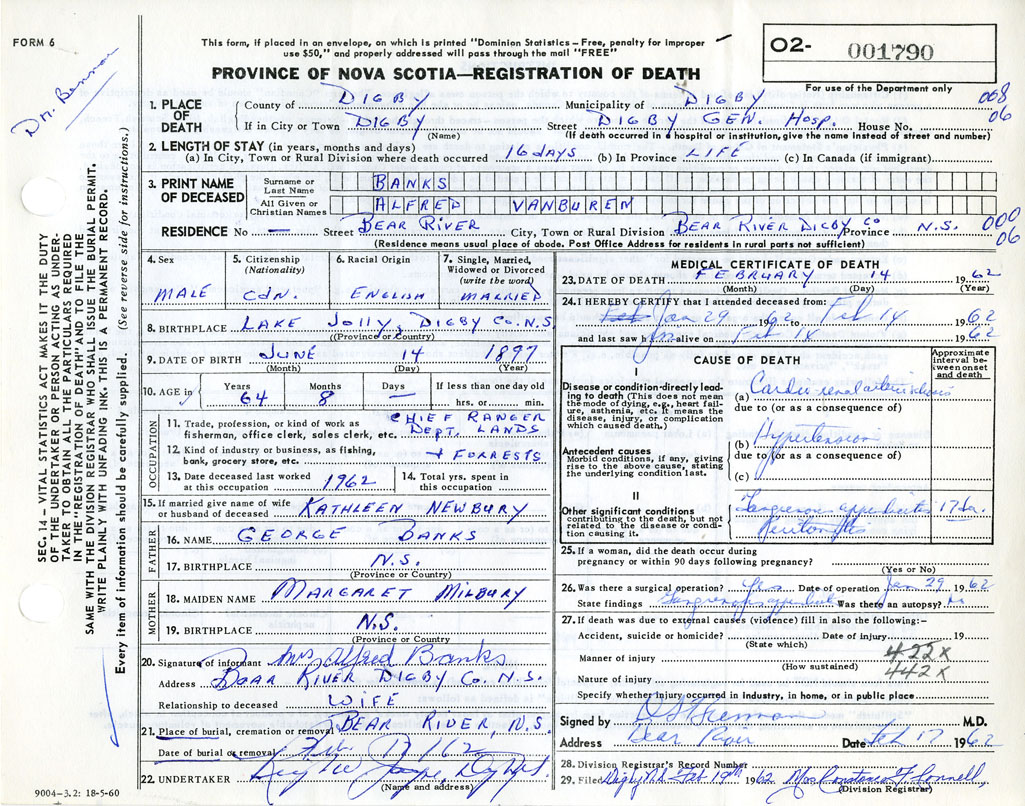 FORM 6
This form, if placed in an envelope, on which is printed "Dominion Statistics – Free, penalty for improper
use $50," and properly addressed will pass through the mail "FREE"
PROVINCE OF NOVA SCOTIA—REGISTRATION OF DEATH
O2- 001790
For use of the Department only
008
06
1. PLACE OF DEATH
County of DIGBY Municipality of DIGBY
If in City or Town DIGBY (Name) Street DIGBY GEN. HOSP. House No.
(If death occurred in a hospital or institution, give the name instead of street and number)
2. LENGTH OF STAY (in years, months and days)
(a) In City, Town or Rural Division where death occurred 16 days (b) In Province LIFE (c) In Canada (if immigrant)
3. PRINT NAME OF DECEASED
Surname or Last Name BANKS
All Given or Christian Names ALFRED VANBUREN
RESIDENCE No — Street BEAR RIVER City, Town or Rural Division BEAR RIVER DIGBY Co Province N.S.
000
06
(Residence means usual place of abode. Post Office Address for residents in rural parts not sufficient)
4. Sex MALE
5. Citizenship (Nationality) CDN.
6. Racial Origin ENGLISH
7. Single, Married, Widowed or Divorced (write the word) MARRIED
8. BIRTHPLACE LAKE JOLLY, DIGBY Co. N.S.
(Province or Country)
9. DATE OF BIRTH JUNE 14 1897
(Month) (Day) (Year)
10. AGE in Years 64 Months 8 Days — If less than one day old hrs. or min.
OCCUPATION
11. Trade, profession, or kind of work as fisherman, office clerk, sales clerk, etc. CHIEF RANGER DEPT. LANDS
12. Kind of industry or business, as fishing, bank, grocery store, etc. + FORRESTS
13. Date deceased last worked at this occupation 1962
14. Total yrs. spent in this occupation
15. If married give name of wife or husband of deceased KATHLEEN NEWBURY
FATHER
16. NAME GEORGE BANKS
17. BIRTHPLACE N.S.
(Province or Country)
MOTHER
18. MAIDEN NAME MARGARET MILBURY
19. BIRTHPLACE N.S.
(Province or Country)
20. Signature of informant Mrs Alfred Banks
Address BEAR RIVER DIGBY Co. N.S.
Relationship to deceased WIFE
21. Place of burial, cremation or removal BEAR RIVER, N.S.
Date of burial or removal Feb 17/62
22. UNDERTAKER
(Name and address)
9004-3.2: 18-5-60
MEDICAL CERTIFICATE OF DEATH
23. DATE OF DEATH FEBRUARY 14 1962
(Month) (Day) (Year)
24. I HEREBY CERTIFY that I attended deceased from:
Feb Jan 29 1962 to Feb 14 1962
and last saw him alive on Feb 14 1962
CAUSE OF DEATH
Approximate interval between onset and death
I
Disease or condition directly leading to death (This does not mean the mode of dying, e.g., heart failure, asthenia, etc. It means the disease, injury, or complication which caused death.)
(a) Cardio-renal arteriosclerosis
due to (or as a consequence of)
Antecedent causes
Morbid conditions, if any, giving rise to the above cause, stating the underlying condition last.
(b) Hypertension
due to (or as a consequence of)
(c)
II
Other significant conditions contributing to the death, but not related to the disease or condition causing it.
Gangrenous appendicitis 17 da.
Peritonitis
25. If a woman, did the death occur during pregnancy or within 90 days following pregnancy?
(Yes or No)
26. Was there a surgical operation? Yes Date of operation Jan 29 1962
State findings Gangrenous append. Was there an autopsy? no
27. If death was due to external causes (violence) fill in also the following:-
Accident, suicide or homicide? Date of injury 19
(State which)
Manner of injury
(How sustained)
422X
442X
Nature of injury
Specify whether injury occurred in industry, in home, or in public place
Signed by M.D.
Address Bear River Date Feb 17 1962
28. Division Registrar's Record Number
29. Filed Digby N.S. Feb 19th 1962 Mrs. Constance F. Connell
(Division Registrar)
SEC. 14 – VITAL STATISTICS ACT MAKES IT THE DUTY
OF THE UNDERTAKER OR PERSON ACTING AS UNDER-
TAKER TO OBTAIN ALL THE PARTICULARS REQUIRED
IN THE "REGISTRATION OF DEATH" AND TO FILE THE
SAME WITH THE DIVISION REGISTRAR WHO SHALL ISSUE THE BURIAL PERMIT.
WRITE PLAINLY WITH UNFADING INK. THIS IS A PERMANENT RECORD.
Every item of information should be carefully supplied. (See reverse side for instructions.)